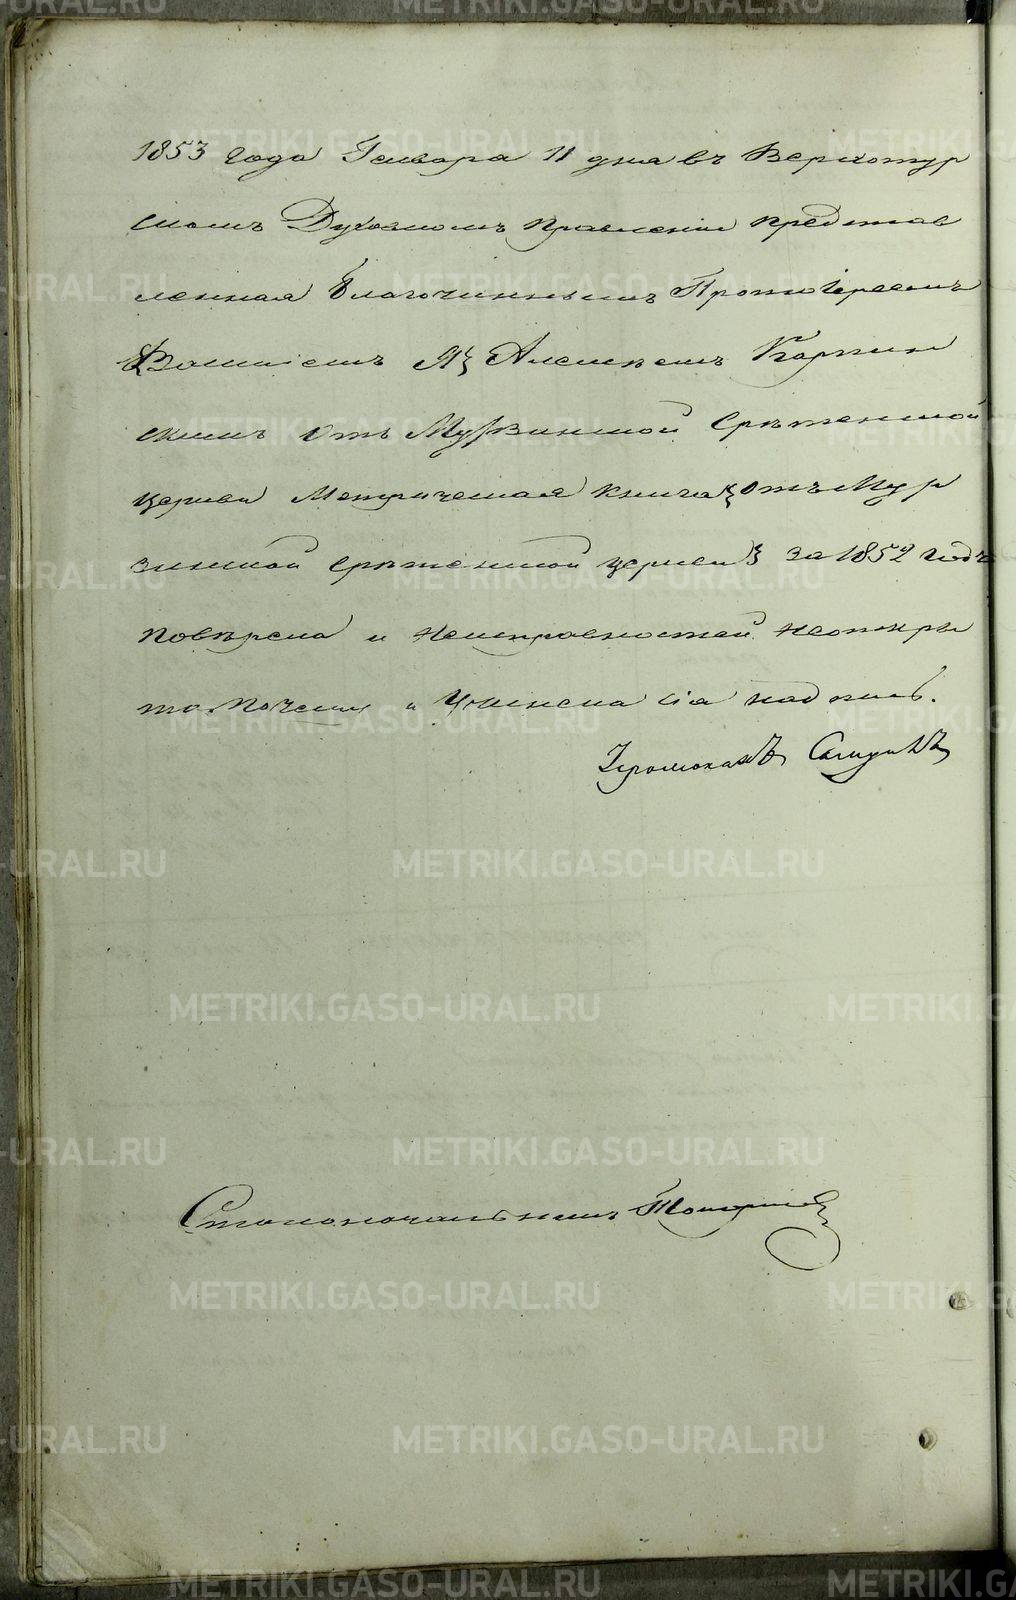 1853 года Генваря 11 дня въ Верхотур
скомъ Духовномъ Правленіи представ
ленная Благочиннымъ Протоіереемъ
Алексѣемъ Карпин
скимъ отъ Мурзинской Срѣтенской
церкви Метрическая книга отъ Мур
зинской Срѣтенской церкви за 1852 годъ
повѣрена и неисправностей неоткры
то. Почему и учинена сія надпись.
Іеромонахъ
Столоначальникъ
METRIKI.GASO-URAL.RU